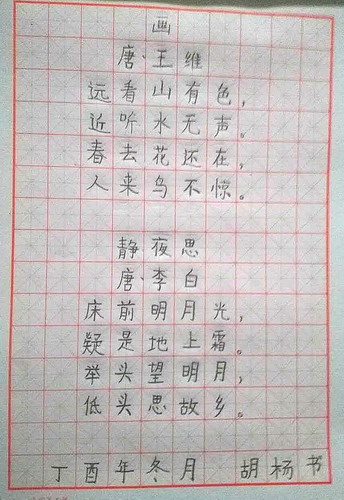 画
唐·王维
远看山有色，
近听水无声。
春去花还在，
人来鸟不惊。
静夜思
唐·李白
床前明月光，
疑是地上霜。
举头望明月，
低头思故乡。
丁酉年冬月 胡杨书